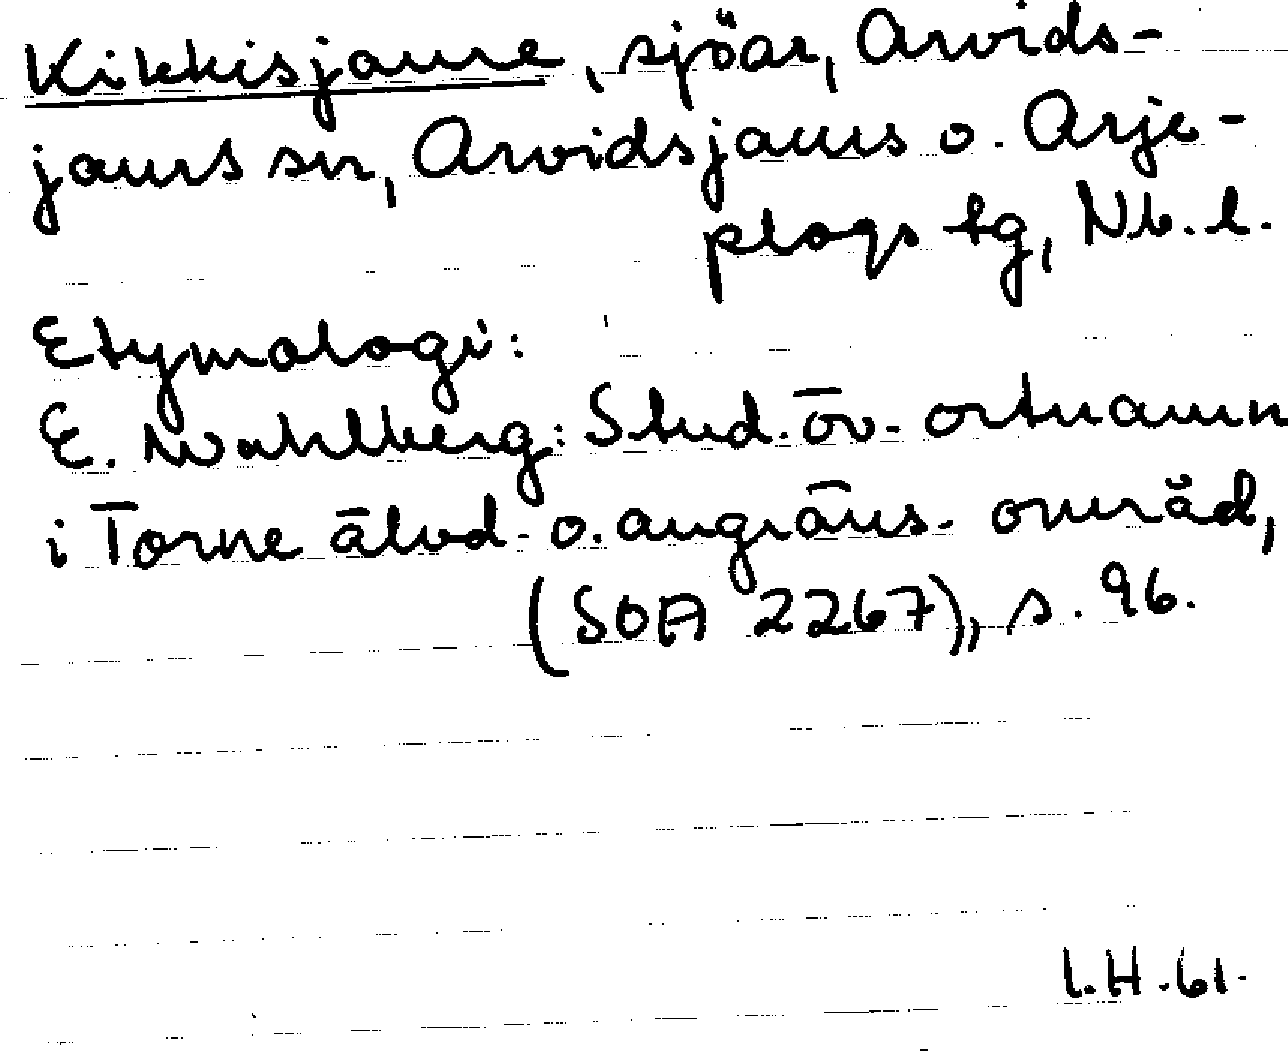 Kikkisjaure, sjöar, Arvids-
jaurs sn, Arvidsjaurs o. Arje-
plogs tg, Nb. l.
Etymologi:
E. Wahlberg: Stud. öv. ortnamn
i Torne älvd. o. angräns. områd,
(SOA 2267), s. 96.
I.H.61.